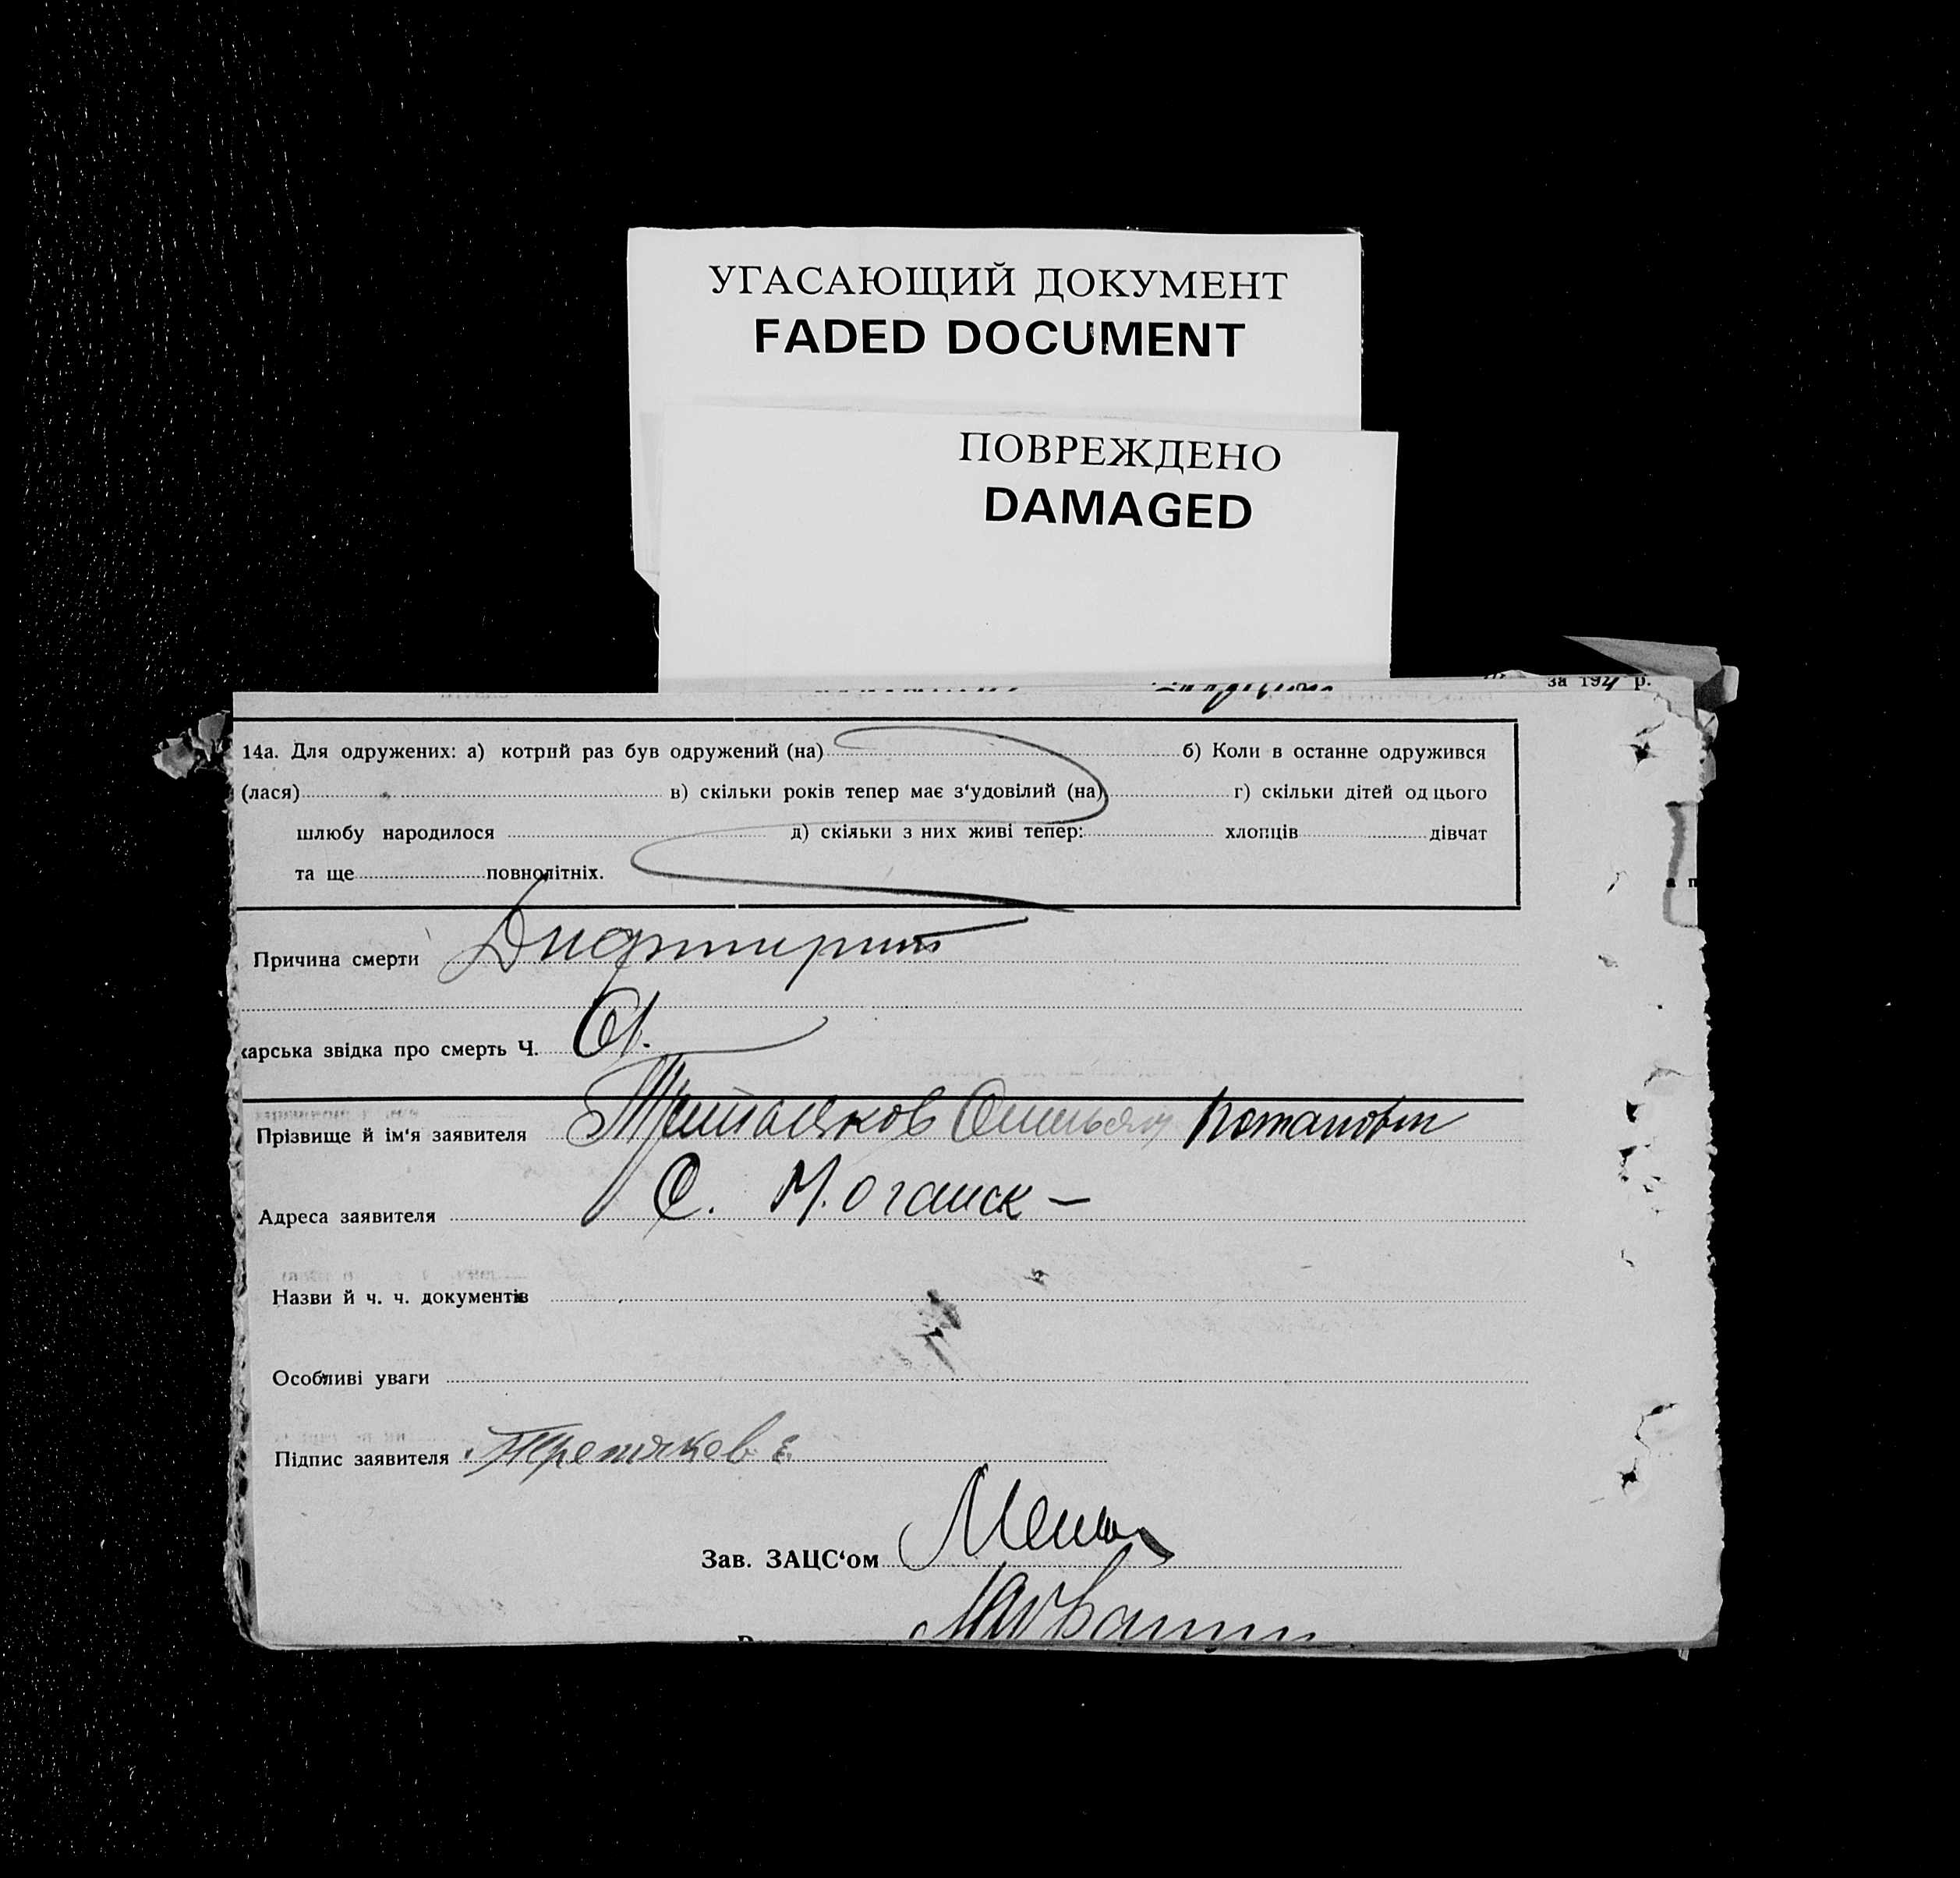 УГАСАЮЩИЙ ДОКУМЕНТ
FADED DOCUMENT
ПОВРЕЖДЕНО
DAMAGED
за 192 р.
14а. Для одружених: а) котрий раз був одружений (на) б) Коли в останне одружився
(лася) в) скільки років тепер має з‘удовілий (на) г) скільки дітей од цього
шлюбу народилося д) скільки з них живі тепер: хлопців дівчат
та ще повнолітніх.
Причина смерти Дифтирит
карська звідка про смерть Ч.
Прізвище й ім‘я заявителя
Адреса заявителя С.
Назви й ч. ч. документів
Особливі уваги
Підпис заявителя Третяков Е
Зав. ЗАЦС‘ом